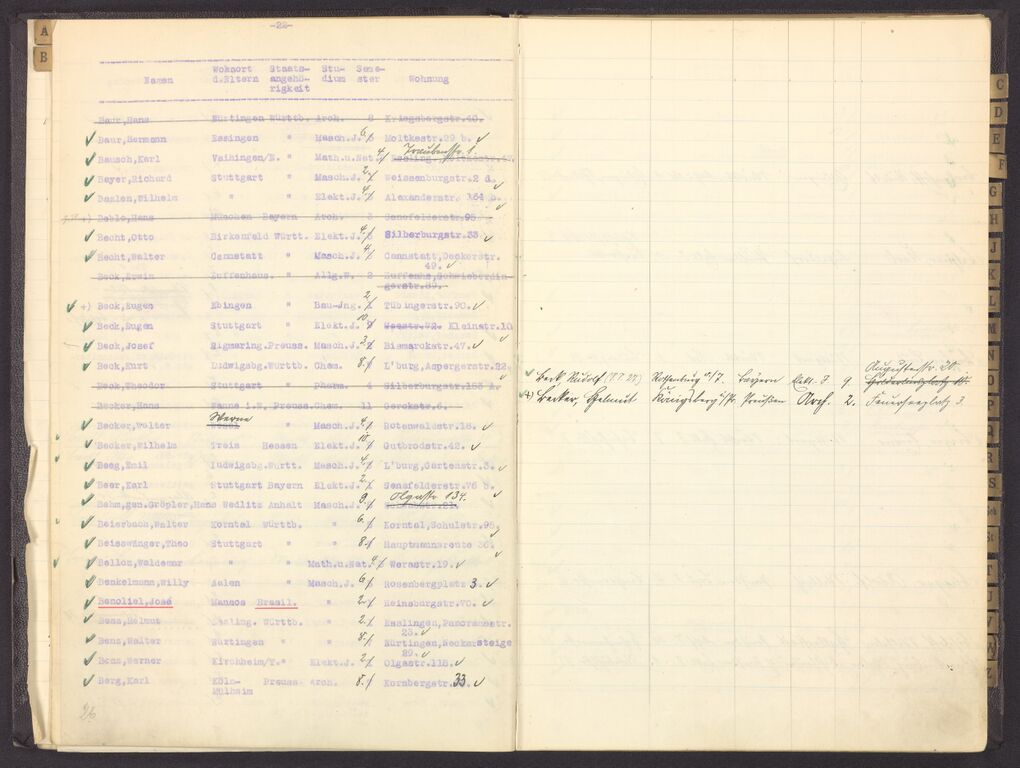 A
B
-22-
Namen Wohnort d.Eltern Staats-angehö-rigkeit Stu-dium Seme-ster Wohnung
Baur,Hans Nürtingen Württb. Arch. 8 Kriegsbergstr.40.
Baur,Hermann Essingen " Masch.J. 6 Moltkestr.29 b.
Traubenstr. 1.
Bausch,Karl Vaihingen/E. " Math.u.Nat. 4
Bayer,Richard Stuttgart " Masch.J. 2 Weissenburgstr.2 d.
Bazlen,Wilhelm " " Elekt.J. 4 Alexanderstr. 164 b.
+) Bebio,Hans München Bayern Arch. 3 Senefelderstr.95
Becht,Otto Birkenfeld Württ. Elekt.J. 4 Silberburgstr.33
Hecht,Walter Cannstatt " Masch.J. 4 Cannstatt,Deckerstr.
49.
Beck,Erwin Zuffenhaus. " Allg.W. 2 Zuffenhs,Schwieberdin-
gerstr.89.
+) Beck,Eugen Ebingen " Bau-Jng. 2 Tübingerstr.90.
Beck,Eugen Stuttgart " Elekt.J. 10 Kleinstr.10
Beck,Josef Sigmaring.Preuss. Masch.J. Bismarckstr.47.
Beck,Kurt Ludwigsbg.Württb. Chem. 8. L'burg,Aspergerstr.22
Beck,Theodor Stuttgart " Pharm. 4 Silberburgstr.158 A.
Becker,Hans Hanns i.W. Preuss.Chem. 11 Gerokstr.6.
Werne
Becker,Walter Wesel " Masch.J. Rotenwaldstr.18.
Becker,Wilhelm Treis Hessen Elekt.J. 10 Gutbrodstr.42.
Beeg,Emil Ludwigsbg.Württ. Masch.J. 4 L'burg,Gartenstr.3.
Beer,Karl Stuttgart Bayern Elekt.J. 2 Senefelderstr.76 b.
Olgastr. 134.
Behm,gen.Gröpler,Hans Wedlitz Anhalt Masch.J. 9.
Beierbach,Walter Korntal Württb. " 6. Korntal,Schulstr.95.
Beisswänger,Theo Stuttgart " " 8. Hauptmannsreute 36.
Bellon,Waldemar " " Math.u.Nat. 4 Werastr.19.
Benkelmann,Willy Aalen " Masch.J. 6 Rosenbergplatz 3.
Benoliel,José Manaos Brasil. " 2. Heinsburgstr.70.
Benz,Helmut Essling. Württb. " 2. Esslingen,Panoramastr.
23.
Benz,Walter Nürtingen " " 8. Nürtingen,Neckarsteige
29.
Benz,Werner Kirchheim/T." Elekt.J. 2 Olgastr.118.
Berg,Karl Köln- Preuss. Arch. 8. Kornbergstr.33.
Mülheim
26
Augustenstr. 20.
Beck Rudolf Rothenburg o/T. Bayern Elekt. J 9. Hölderlinplatz
+) Becker, Helmut Königsberg i/Pr. Preußen Arch. 2. Feuerseeplatz 3.
C
D
E
F
G
H
J
K
L
M
N
O
P
Q
R
S
Sch
St
T
U
V
W
Z